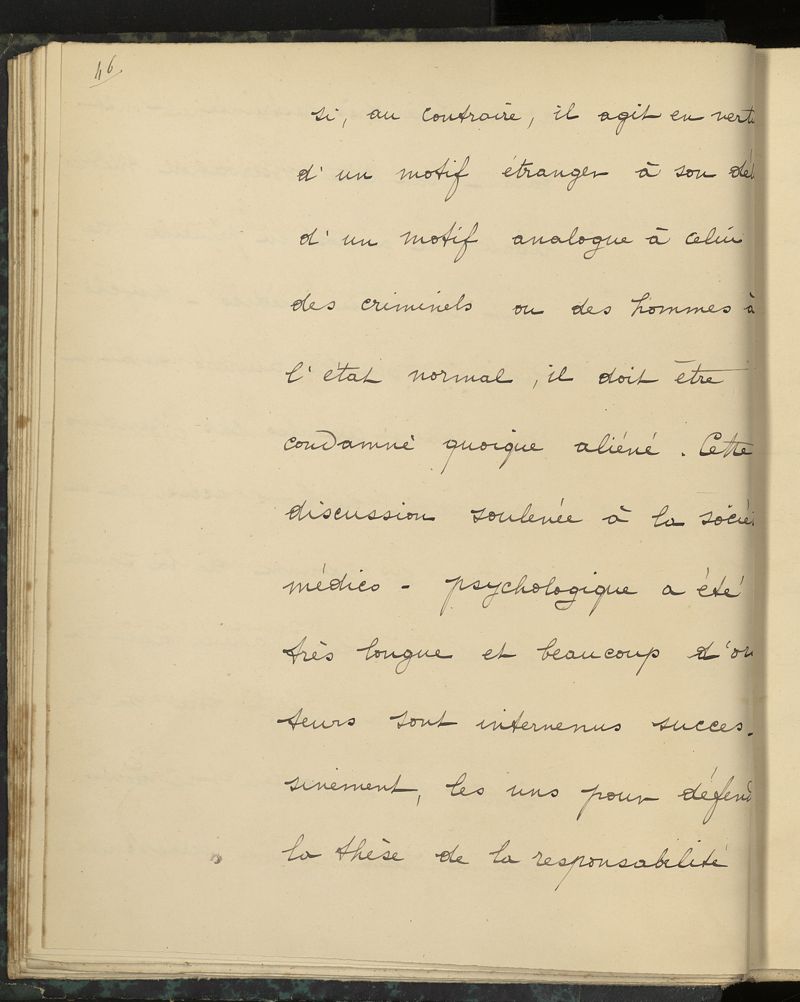 46
si, au contraire, il agit en vertu
d'un motif étranger à son dél
d'un motif analogue à celui
des criminels ou des hommes à
l'état normal, il doit être
condamné quoique aliéné. Cette
discussion soulevée à la socié
médico-psychologique a été
très longue et beaucoup d'or
teurs sont intervenus succes-
sivement, les uns pour défend
la thèse de la responsabilité